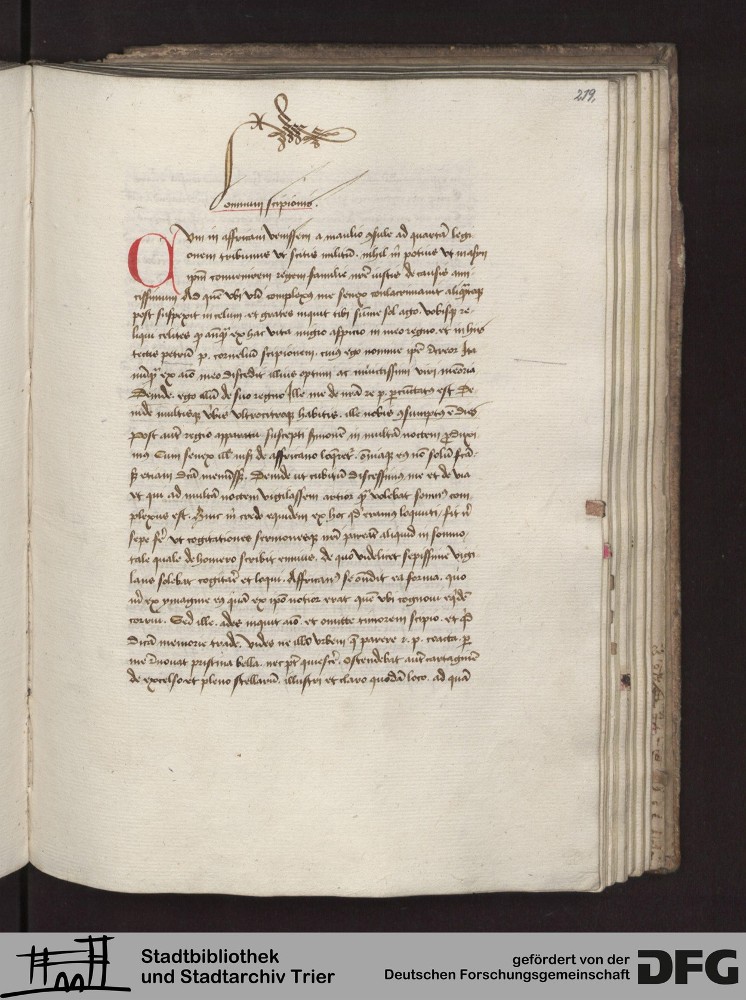 219,
Somnium scipionis.
Cum in affricam venissem a manlio 9sule ad quartā legi
onem tribunus ut scitis militū. nihil m̄ potius ut masyn
ipm̄ convenirem regem familie nr̄e iustis de causis ami
cissimum Ad quē ubi vēi complexus me senex conlacrimavit aliqȝtoqȝ
post suspexit in celum. et grates inquit tibi sūme sol ago. vobisqȝ re
liqui celites qȝ anqȝ ex hac vita migro aspicio in meo regno. et in hiis
tectis petriū p. cornelium scipionem. cuius ego nomine ipō recreor Ita
nūqȝ ex aīo meo discedit illius optimi ac invictissimi viri memoria
Deinde. ego illū de suo regno Ille me de nr̄a re p. percūctatꝰ est De
inde multisqȝ vbis ultrocitroqȝ habitis. ille nobis 9sumptꝰ ē dies
Post aut̄ regio apparatu suscepti sermonē in multā noctem produxi
mus Cum senex nihil nisi de affricano loqueret̄. omniaqȝ eiꝰ nō solū fc̄a.
sȝ etiam dicā meminiss̄. Deinde ut cubitū discessimus me et de via
et qui ad multā noctem vigilassem artior qȝ solebat somnꝰ com
plexus est. Hinc m̄ credo equidem ex hoc qd̄ eramꝰ loquuti. fit n̄
sepe fer̄ ut cogitationes sermonesqȝ nr̄i pareāt aliquid in somno
tale quale de homero scribit ennius. de quo videlicet sepissime vigi
lans solebat cogitar̄ et loqui. Affricanꝰ se ondit ea forma. quo
m̄ ex ymagine eiꝰ quā ex ipō notior erat quē ubi cognovi eqdē
corrui. Sed ille. ades inquit aīo et omitte timorem scipio. et qȝ
dicā memorie trade. vides ne illā urbem qȝ parere r. p. coacta p
me renovat pristina bella. nec pt̄ quiescer̄. Ostendebat aut̄ cartaginē
de excelso et pleno stellarū. illustri et claro quodā loco. ad quā
Stadtbibliothek
und Stadtarchiv Trier
gefördert von der
Deutschen Forschungsgemeinschaft
DFG